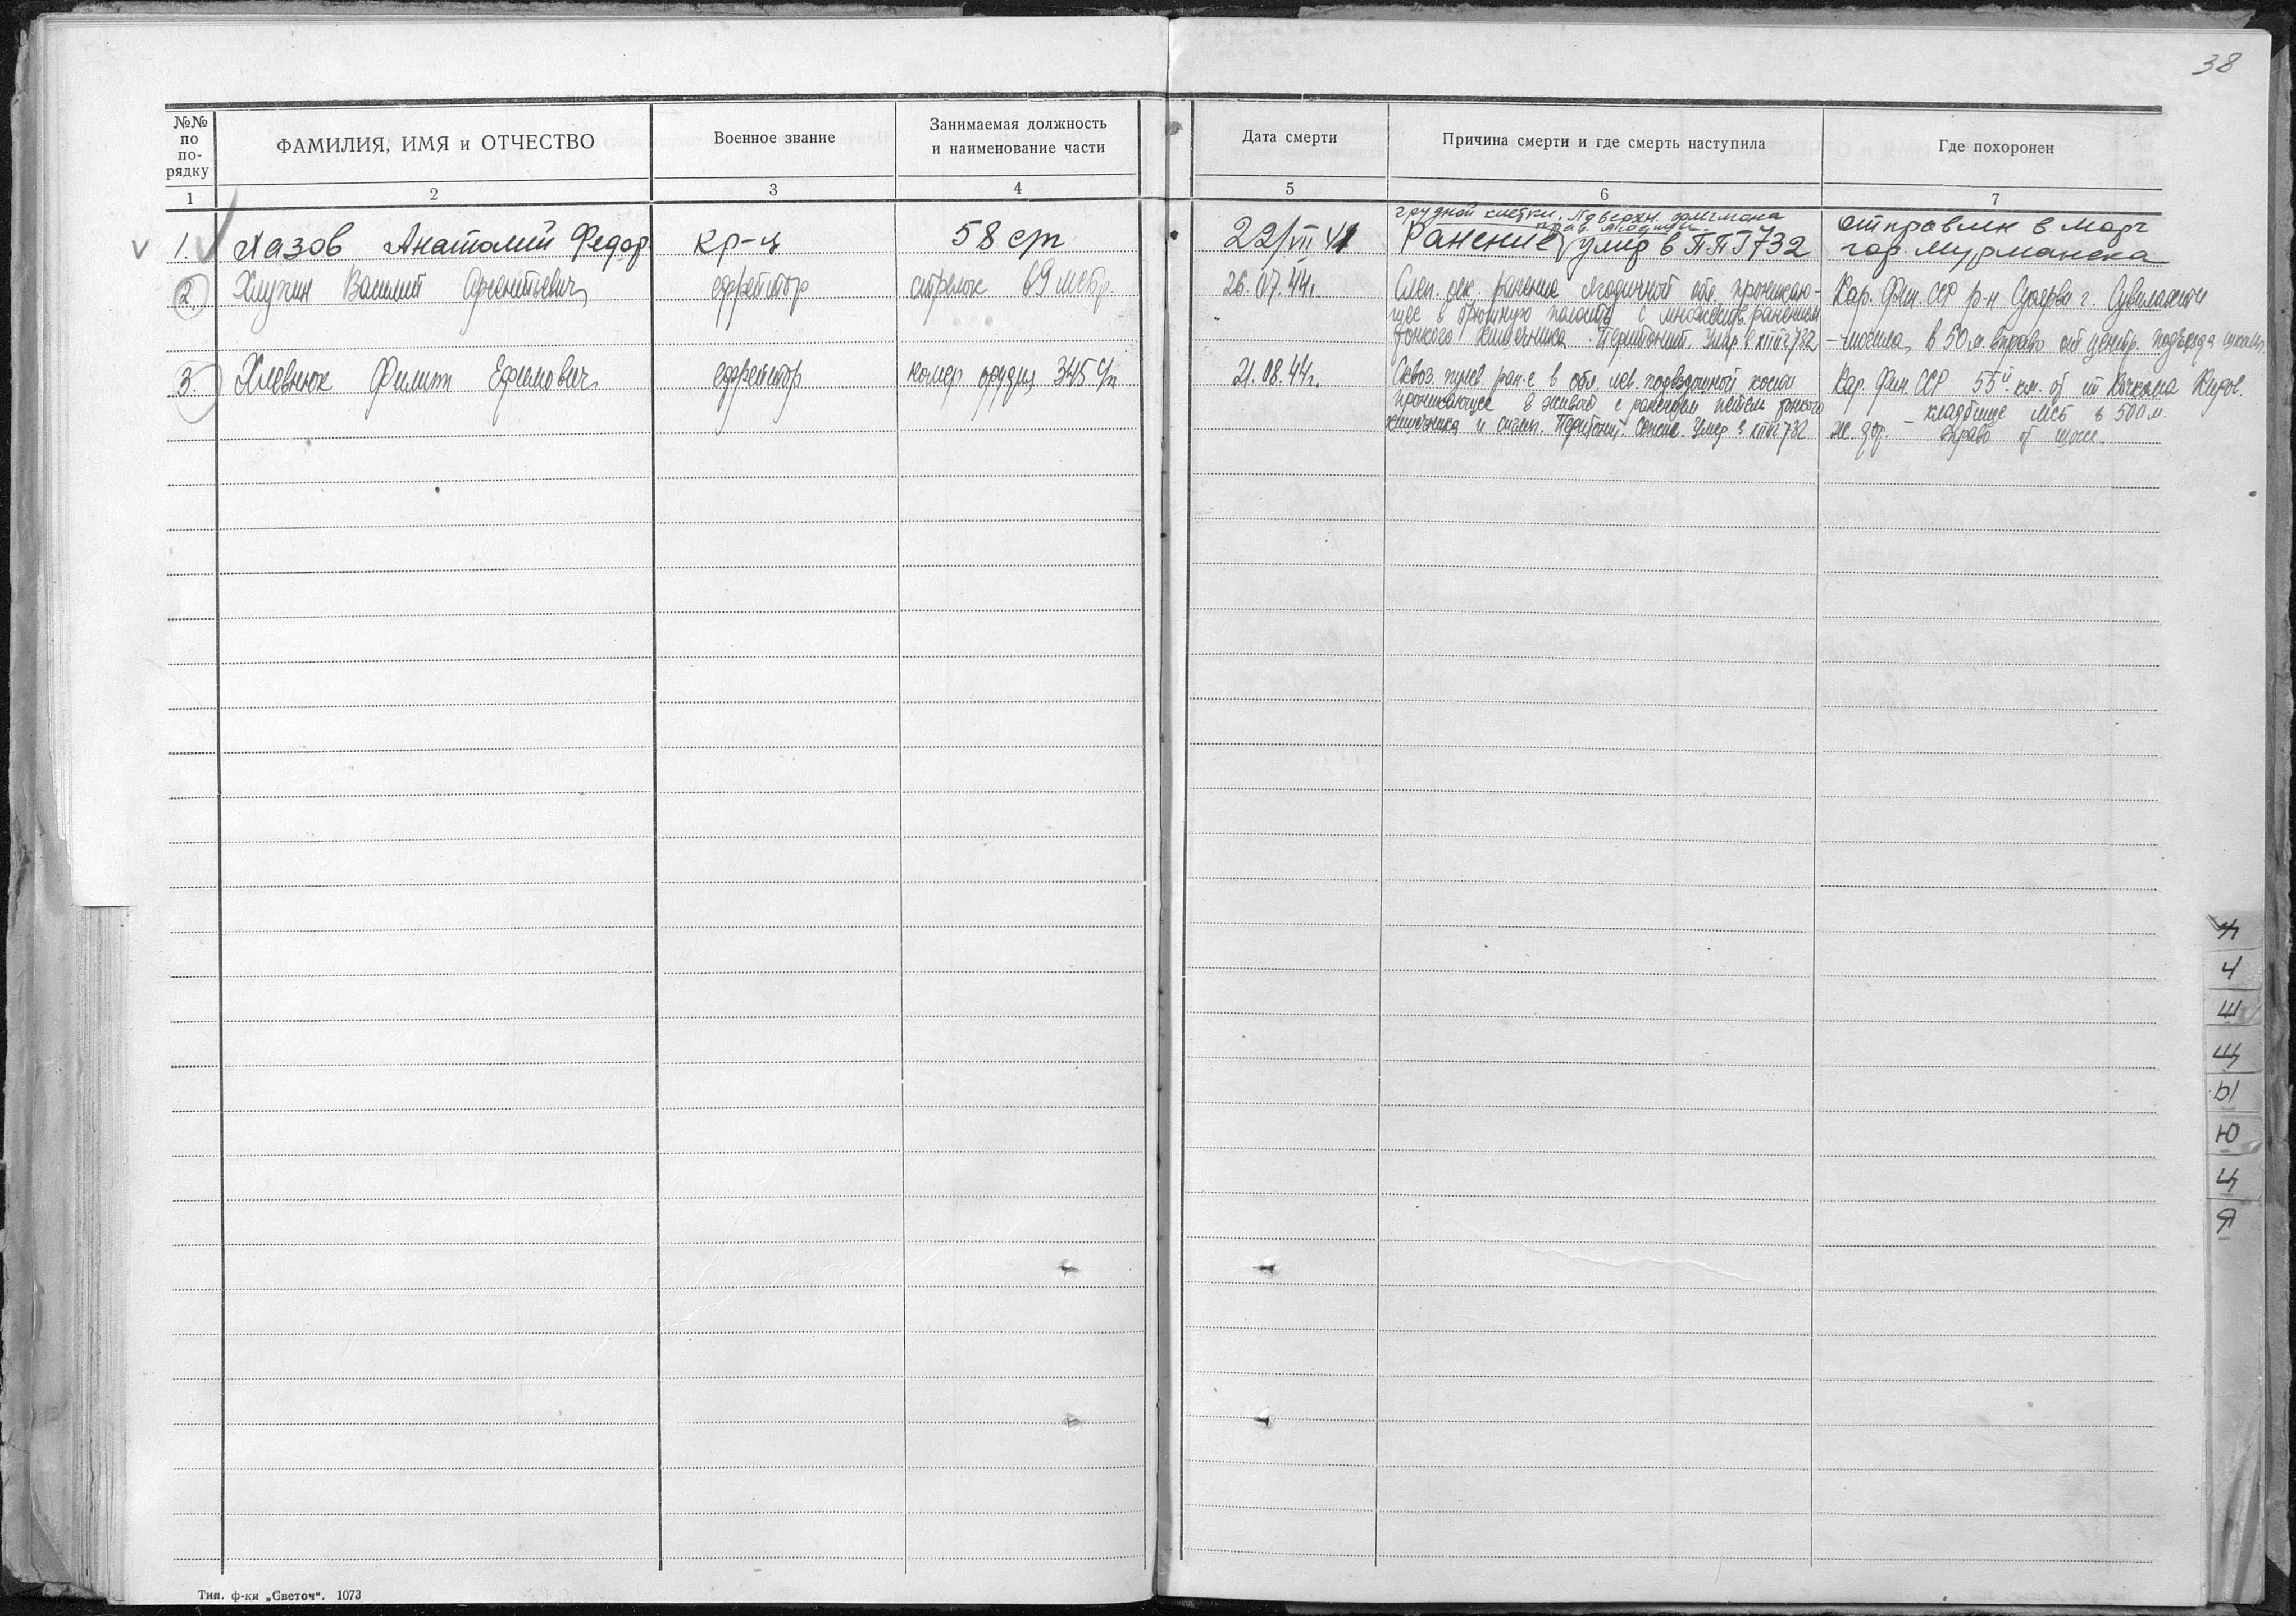 38
№№ по по- рядку
ФАМИЛИЯ, ИМЯ и ОТЧЕСТВО
Военное звание
Занимаемая должность
и наименование части
Дата смерти
Причина смерти и где смерть наступила
Где похоронен
1 2 3 4 5 6 7
грудной клетки,
прав.
v 1. Хазов Анатолий Федор. кр-ц 58 сп 22/VII 41 Ранение умер в ППГ 732 отправлен в морг
гор. Мурманска
2. Василий Арсентьевич ефрейтор стрелок 69 26.07.44г. Слеп. оск. ранение ягодичной обл. проникаю-
щее в брюшную полость с множеств. ранением
тонкого кишечника. Перитонит. Умер в
Кар. Фин. ССР р-н Суоярви г. Сувилахти
- могила в 50 м вправо от центр. подъезда
3. Хлевнюк Филипп Ефимович ефрейтор номер орудия 345 сп 21.08.44г. Сквоз. пулев. ран-е в обл. лев. подвздошной кости
проникающее в живот с ранением петель тонкого
кишечника и сигм. Перитонит. Сепсис. Умер в
Кар. Фин. ССР 55й км. от ст Кочкома Киров.
- кладбище лес в 500 м.
ж. д. - вправо от шоссе.
Ч
Ш
Щ
Ы
Ю
Ц
Я
Тип. ф-ки „Светоч“. 1073